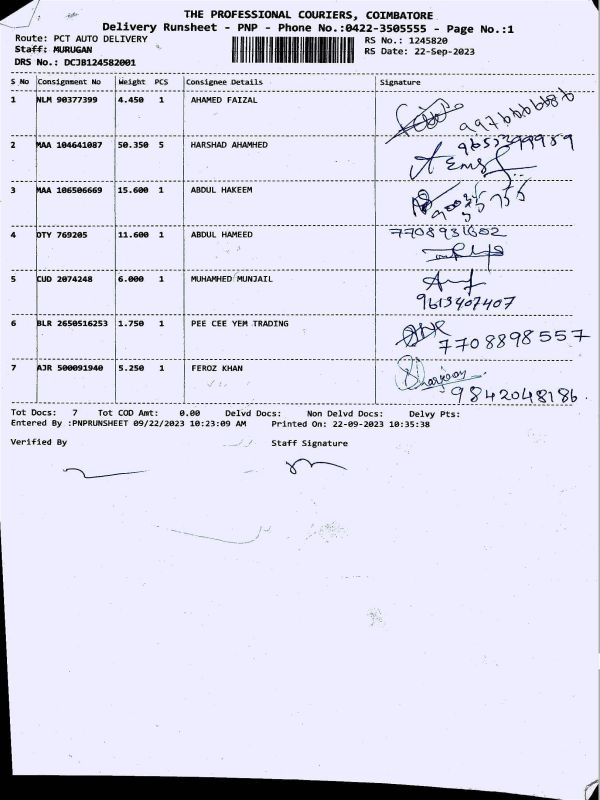 THE PROFESSIONAL COURIERS, COIMBATORE
Delivery Runsheet - PNP - Phone No.:0422-3505555 - Page No.:1
Route: PCT AUTO DELIVERY
RS No.: 1245820
Staff: MURUGAN
RS Date: 22-Sep-2023
DRS No.: DCJB124582001
S No Consignment No Weight PCS Consignee Details Signature
1 NLM 90377399 4.450 1 AHAMED FAIZAL
2 MAA 104641087 50.350 5 HARSHAD AHAMHED
3 MAA 106506669 15.600 1 ABDUL HAKEEM
4 OTY 769205 11.600 1 ABDUL HAMEED 7708931602
5 CUD 2074248 6.000 1 MUHAMHED MUNJAIL
9613407407
6 BLR 2650516253 1.750 1 PEE CEE YEM TRADING
7708898557
7 AJR 500091940 5.250 1 FEROZ KHAN
9842048186
Tot Docs: 7 Tot COD Amt: 0.00 Delvd Docs: Non Delvd Docs: Delvy Pts:
Entered By :PNPRUNSHEET 09/22/2023 10:23:09 AM Printed On: 22-09-2023 10:35:38
Verified By Staff Signature